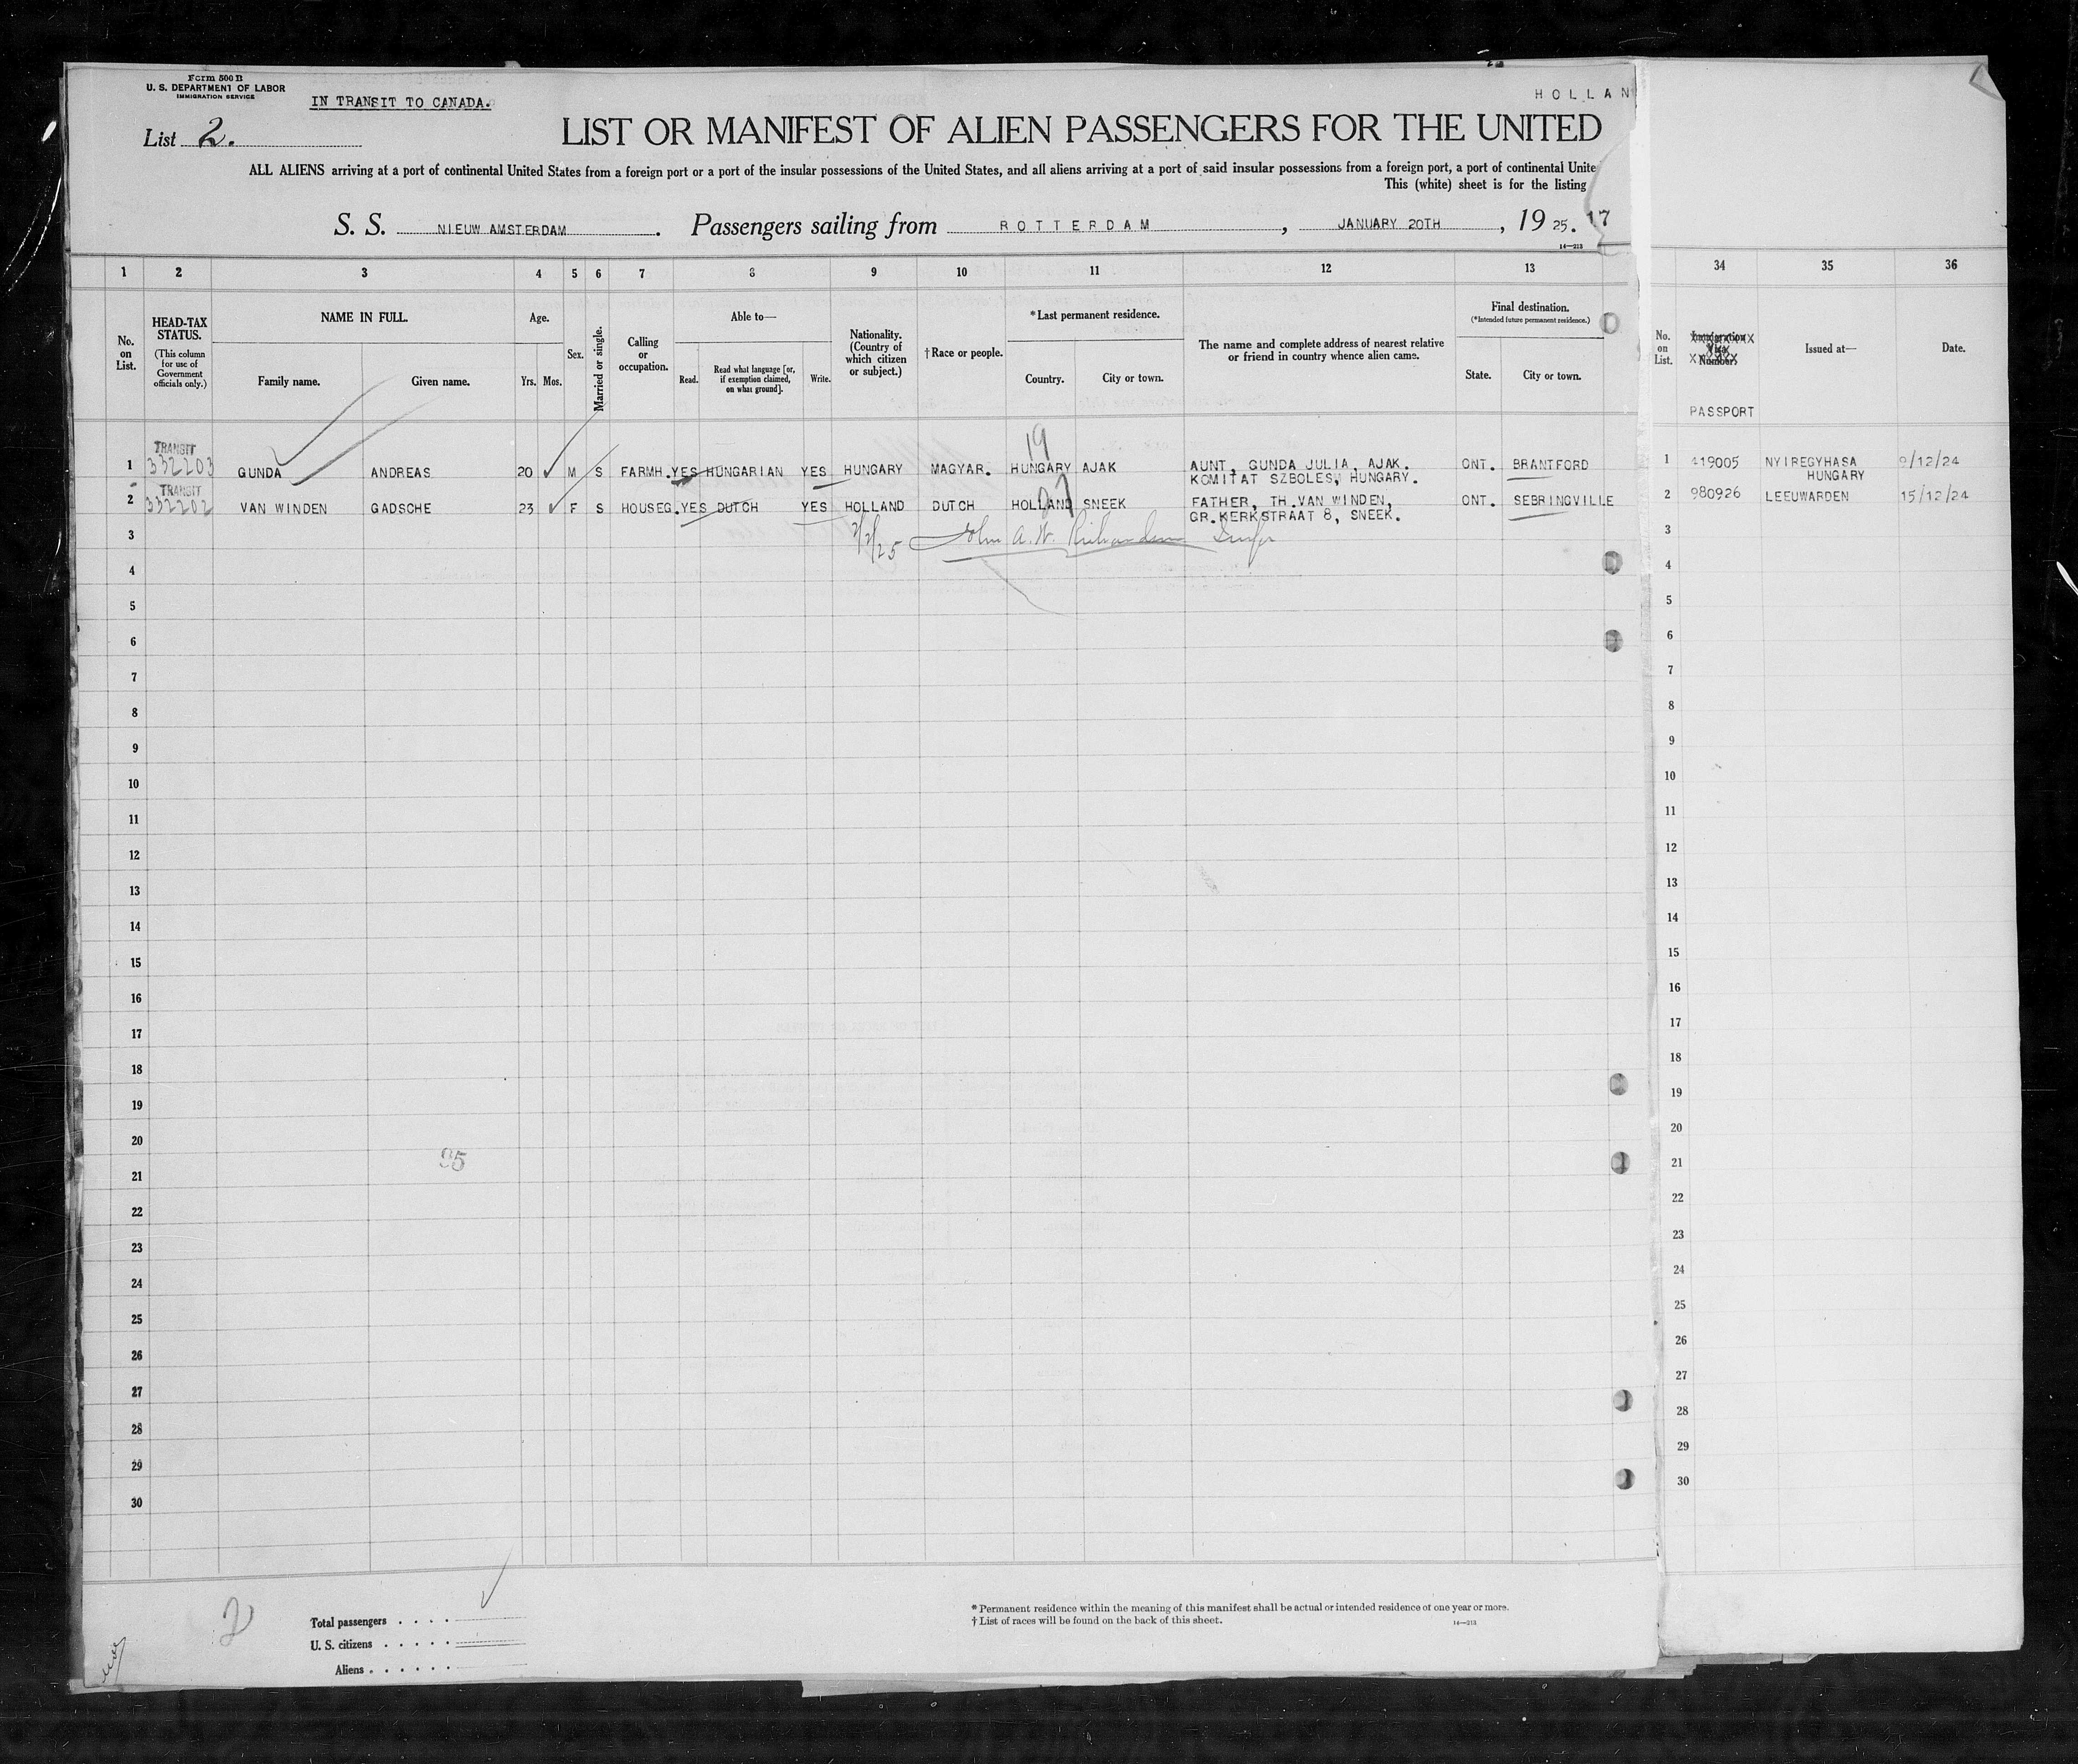 Form 500 B
U. S. DEPARTMENT OF LABOR
IMMIGRATION SERVICE
IN TRANSIT TO CANADA.
HOLLAN
List 2.
LIST OR MANIFEST OF ALIEN PASSENGERS FOR THE UNITED
ALL ALIENS arriving at a port of continental United States from a foreign port or a port of the insular possessions of the United States, and all aliens arriving at a port of said insular possessions from a foreign port, a port of continental Unite
This (white) sheet is for the listing
S. S. NIEUW AMSTERDAM. Passengers sailing from ROTTERDAM, JANUARY 20TH, 1925. 17
14—213
1 2 3 4 5 6 7 8 9 10 11 12 13 34 35 36
No. on List.
HEAD-TAX STATUS.
(This column for use of Government officials only.)
NAME IN FULL.
Family name. Given name.
Age.
Yrs. Mos.
Sex.
Married or single.
Calling or occupation.
Able to—
Read. Read what language [or, if exemption claimed, on what ground]. Write.
Nationality. (Country of which citizen or subject.)
†Race or people.
*Last permanent residence.
Country. City or town.
The name and complete address of nearest relative or friend in country whence alien came.
Final destination.
(*Intended future permanent residence.)
State. City or town.
No. on List.
Immigration Visa Number
PASSPORT
Issued at—
Date.
19
TRANSIT
332203
1 GUNDA ANDREAS 20 M S FARMH. YES HUNGARIAN YES HUNGARY MAGYAR. HUNGARY AJAK AUNT, GUNDA JULIA, AJAK. ONT. BRANTFORD 1 419005 NYIREGYHASA 9/12/24
KOMITAT SZBOLES, HUNGARY. HUNGARY
TRANSIT
332202
2 VAN WINDEN GADSCHE 23 F S HOUSEG. YES DUTCH YES HOLLAND DUTCH HOLLAND SNEEK FATHER, TH.VAN WINDEN, ONT. SEBRINGVILLE 2 980926 LEEUWARDEN 15/12/24
GR.KERKSTRAAT 8, SNEEK.
3 2/2/25 John A. W. Richardson 3
4 4
5 5
6 6
7 7
8 8
9 9
10 10
11 11
12 12
13 13
14 14
15 15
16 16
17 17
18 18
19 19
20 20
21 21
22 22
23 23
24 24
25 25
26 26
27 27
28 28
29 29
30 30
2
Total passengers . . . .
U. S. citizens . . . . .
Aliens . . . . . .
* Permanent residence within the meaning of this manifest shall be actual or intended residence of one year or more.
† List of races will be found on the back of this sheet.
14—213